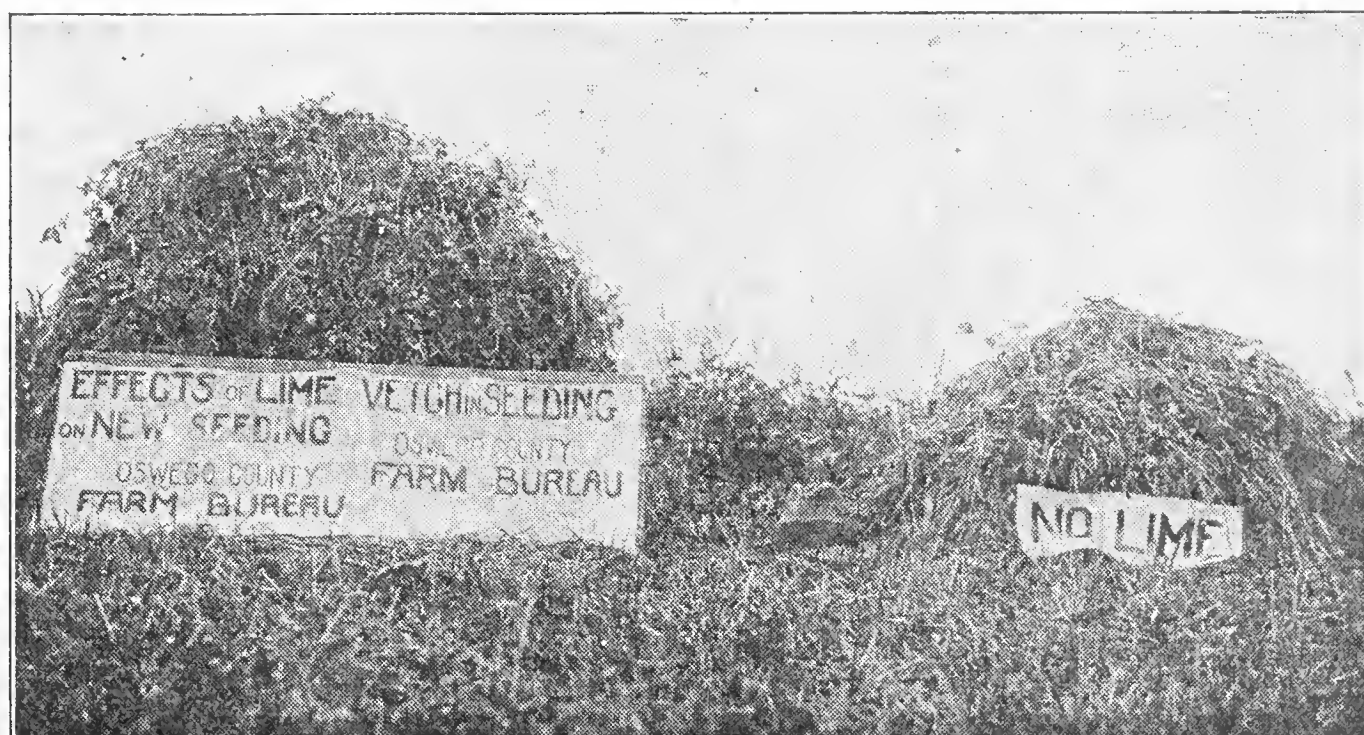 EFFECTS OF LIME
ON NEW SEEDING
OSWEGO COUNTY
FARM BUREAU
VETCH IN SEEDING
OSWEGO COUNTY
FARM BUREAU
NO LIME